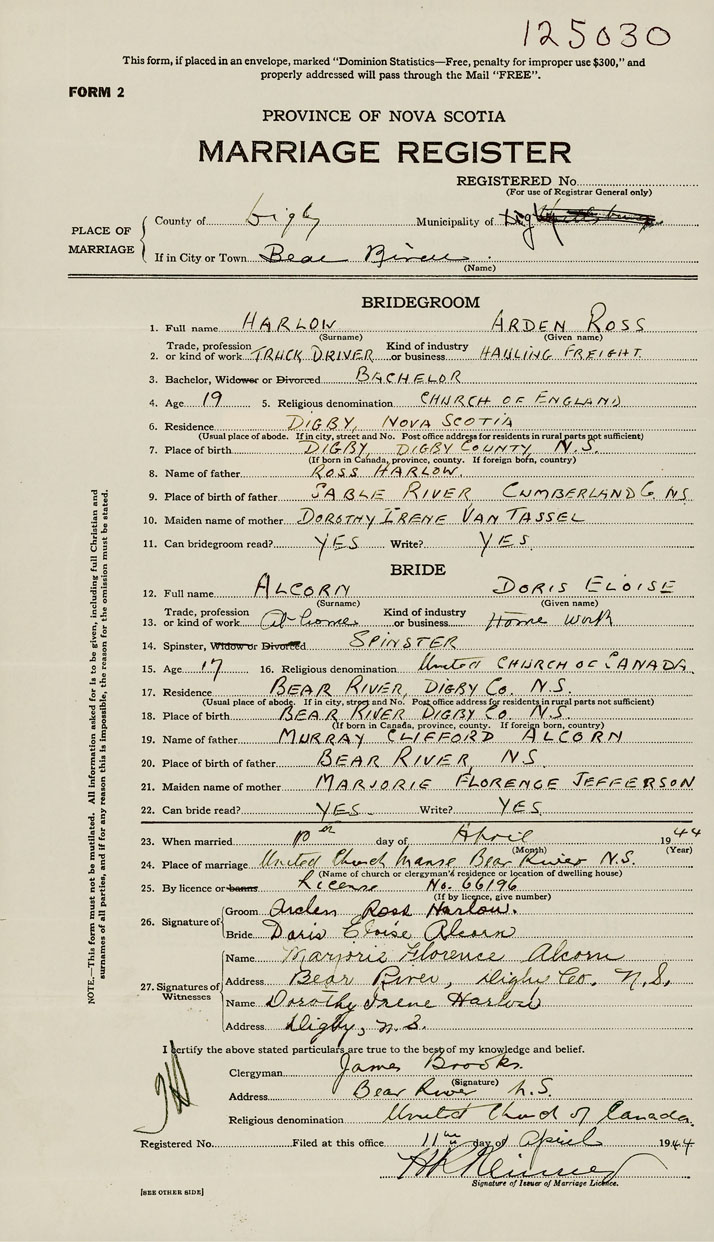 125030
This form, if placed in an envelope, marked "Dominion Statistics—Free, penalty for improper use $300," and
properly addressed will pass through the Mail "FREE".
FORM 2
PROVINCE OF NOVA SCOTIA
MARRIAGE REGISTER
REGISTERED No.
(For use of Registrar General only)
PLACE OF MARRIAGE
County of Digby Municipality of
If in City or Town Bear River
(Name)
BRIDEGROOM
1. Full name HARLOW ARDEN ROSS
(Surname) (Given name)
2. Trade, profession or kind of work TRUCK DRIVER Kind of industry or business HAULING FREIGHT
3. Bachelor, Widower or Divorced BACHELOR
4. Age 19 5. Religious denomination CHURCH OF ENGLAND
6. Residence DIGBY, NOVA SCOTIA
(Usual place of abode. If in city, street and No. Post office address for residents in rural parts not sufficient)
7. Place of birth DIGBY, DIGBY COUNTY, N.S.
(If born in Canada, province, county. If foreign born, country)
8. Name of father ROSS HARLOW.
9. Place of birth of father SABLE RIVER CUMBERLAND Co. NS
10. Maiden name of mother DOROTHY IRENE VAN TASSEL
11. Can bridegroom read? YES Write? YES.
BRIDE
12. Full name ALCORN DORIS ELOISE
(Surname) (Given name)
13. Trade, profession or kind of work At home Kind of industry or business Home work
14. Spinster, Widow or Divorced SPINSTER
15. Age 17 16. Religious denomination United CHURCH OF CANADA
17. Residence BEAR RIVER, DIGBY Co. N.S.
(Usual place of abode. If in city, street and No. Post office address for residents in rural parts not sufficient)
18. Place of birth BEAR RIVER DIGBY Co. N.S.
(If born in Canada, province, county. If foreign born, country)
19. Name of father MURRAY CLIFFORD ALCORN
20. Place of birth of father BEAR RIVER, NS.
21. Maiden name of mother MARJORIE FLORENCE JEFFERSON
22. Can bride read? YES. Write? YES
23. When married 10th day of April 1944
(Month) (Year)
24. Place of marriage United Church Manse Bear River N.S.
(Name of church or clergyman's residence or location of dwelling house)
25. By licence or banns License No. 66196
(If by licence, give number)
26. Signature of
Groom Arden Ross Harlow.
Bride Doris Eloise Alcorn
27. Signatures of Witnesses
Name Marjorie Florence Alcorn
Address Bear River, Digby Co. N.S.
Name Dorothy Irene Harlow
Address Digby, N.S.
I certify the above stated particulars are true to the best of my knowledge and belief.
Clergyman James Brooks.
(Signature)
Address Bear River N.S.
Religious denomination United Church of Canada.
Registered No. Filed at this office 11th day of April 1944
Signature of Issuer of Marriage Licence.
[SEE OTHER SIDE]
NOTE.—This form must not be mutilated. All information asked for is to be given, including full Christian and
surnames of all parties, and if for any reason this is impossible, the reason for the omission must be stated.